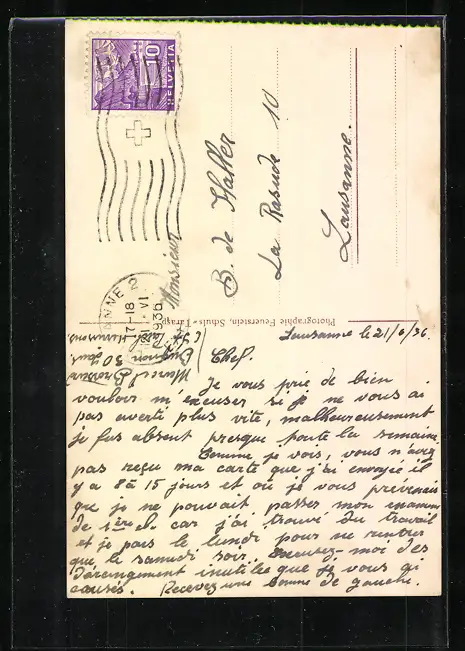 10
HELVETIA
NNE 2
17-18
VI
1936
Monsieur
B. de Haller
La Rasude 10
Lausanne.
Photographie Feuerstein, Schuls-Tarasp
Lausanne le 21/6/36.
Chef.
Je vous prie de bien
vouloir m'excuser si je ne vous ai
pas averti plus vite, malheureusement
je fus absent presque toute la semaine.
Comme je vois, vous n'avez
pas reçu ma carte que j'ai envoyée il
y a 8 à 15 jours et où je vous prévenais
que je ne pouvait passer mon examen
de 1ère cl. car j'ai trouvé du travail
et je pars le lundi pour ne rentrer
que le samedi soir. Excusez-moi des
dérangement inutile que je vous ai
causés. Recevez une bonne de gauche.
Marcel
30